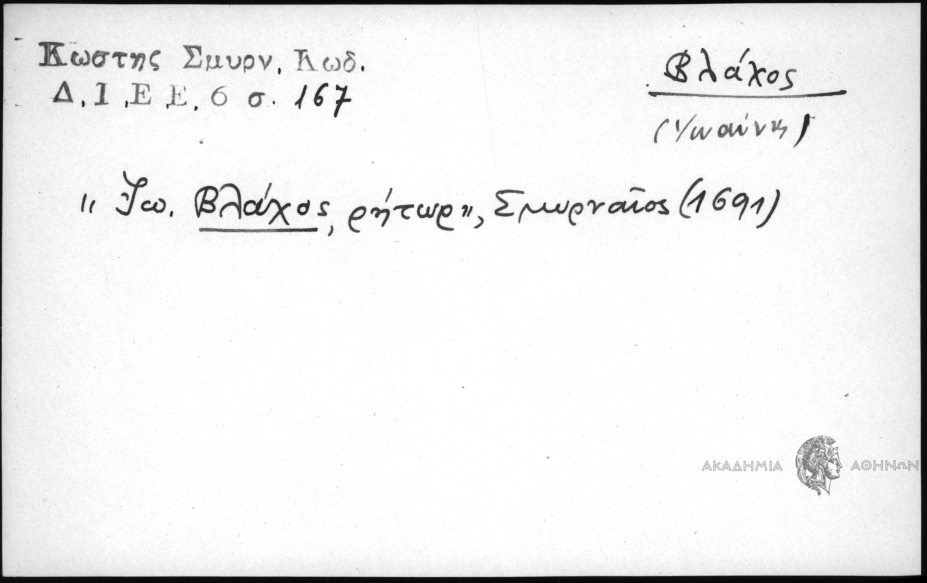 Κωστης Σμυρν. Κωδ.
Δ.Ι.Ε.Ε. 6 σ. 167
Βλάχος
(Ἰωαύνης)
“ Ἰω. Βλάχος, ρήτωρ”, Σμυρναῖος (1691)
ΑΚΑΔΗΜΙΑ ΑΘΗΝΩΝ